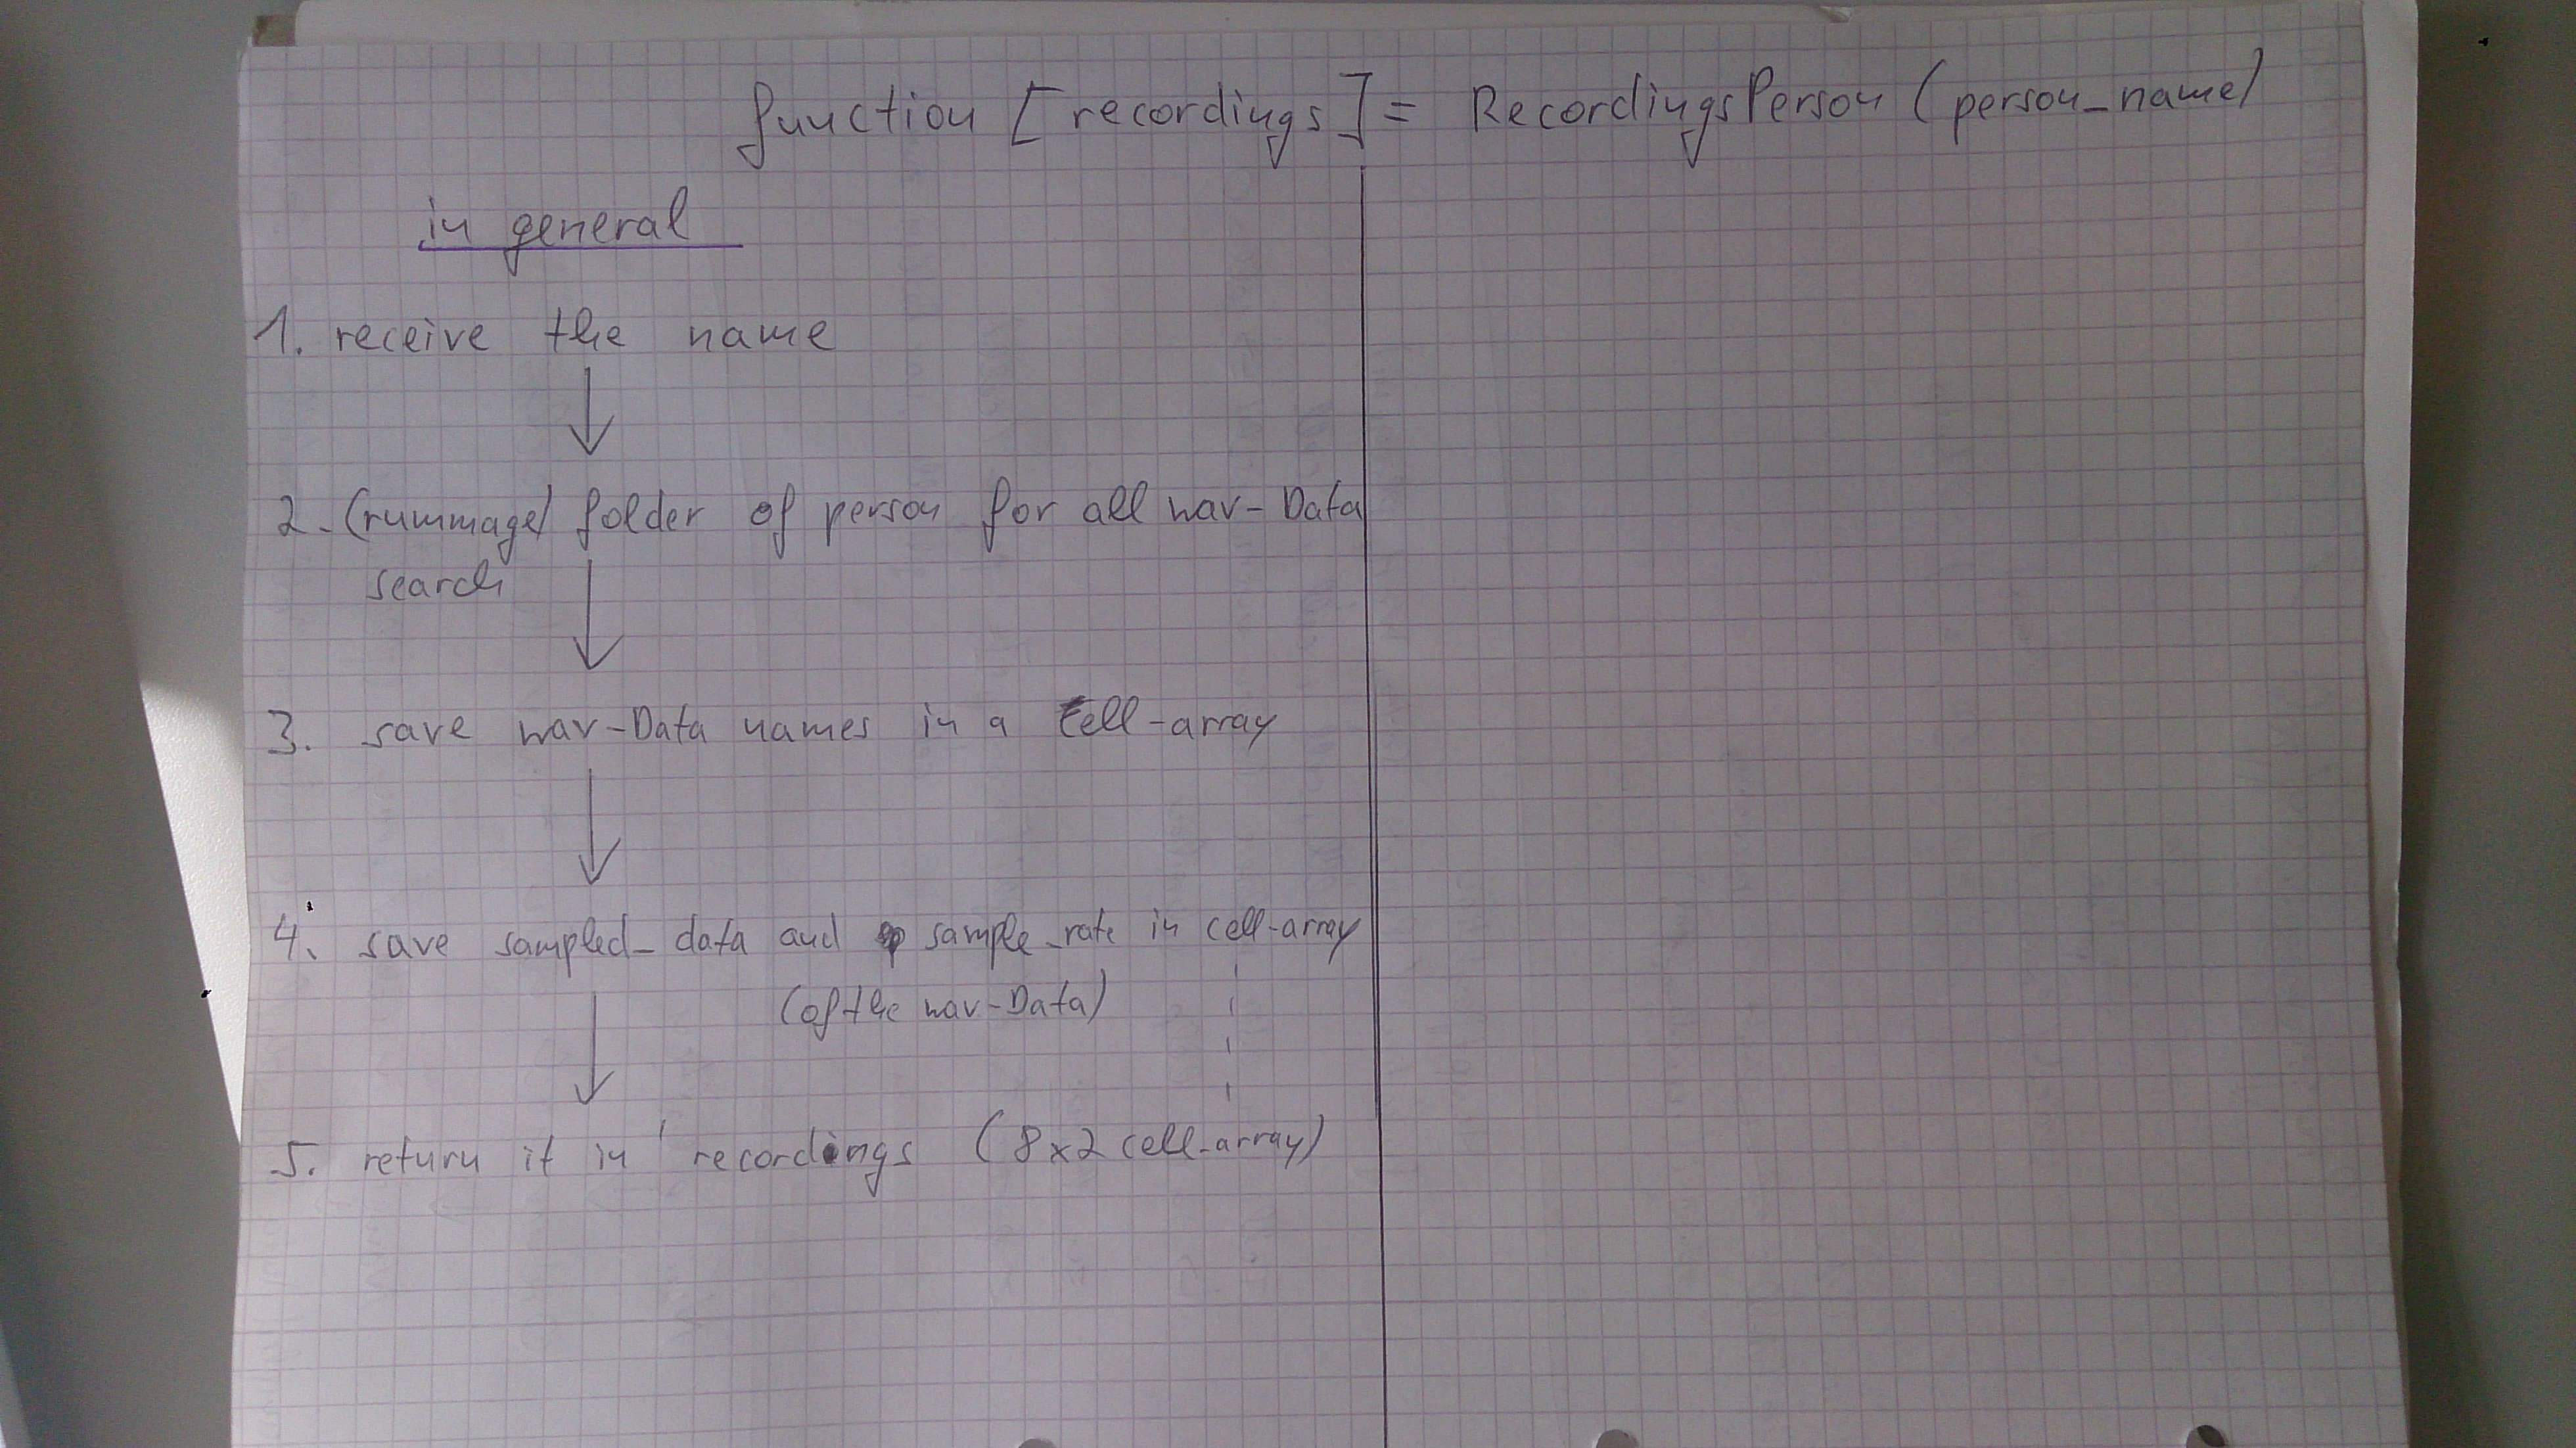 function [recordings] = RecordingsPerson (person_name)
in general
1. receive the name
2. (rummage) folder of person for all wav-Data
search
3. save wav-Data names in a cell-array
4. save sampled_data and sample_rate in cell-array
(of the wav-Data)
5. return it in recordings (8x2 cell-array)